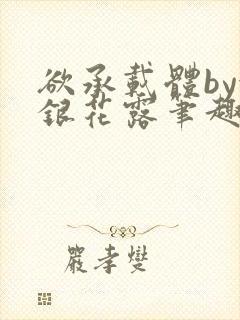 欲承載體by
銀花露筆趣
嚴孝燮